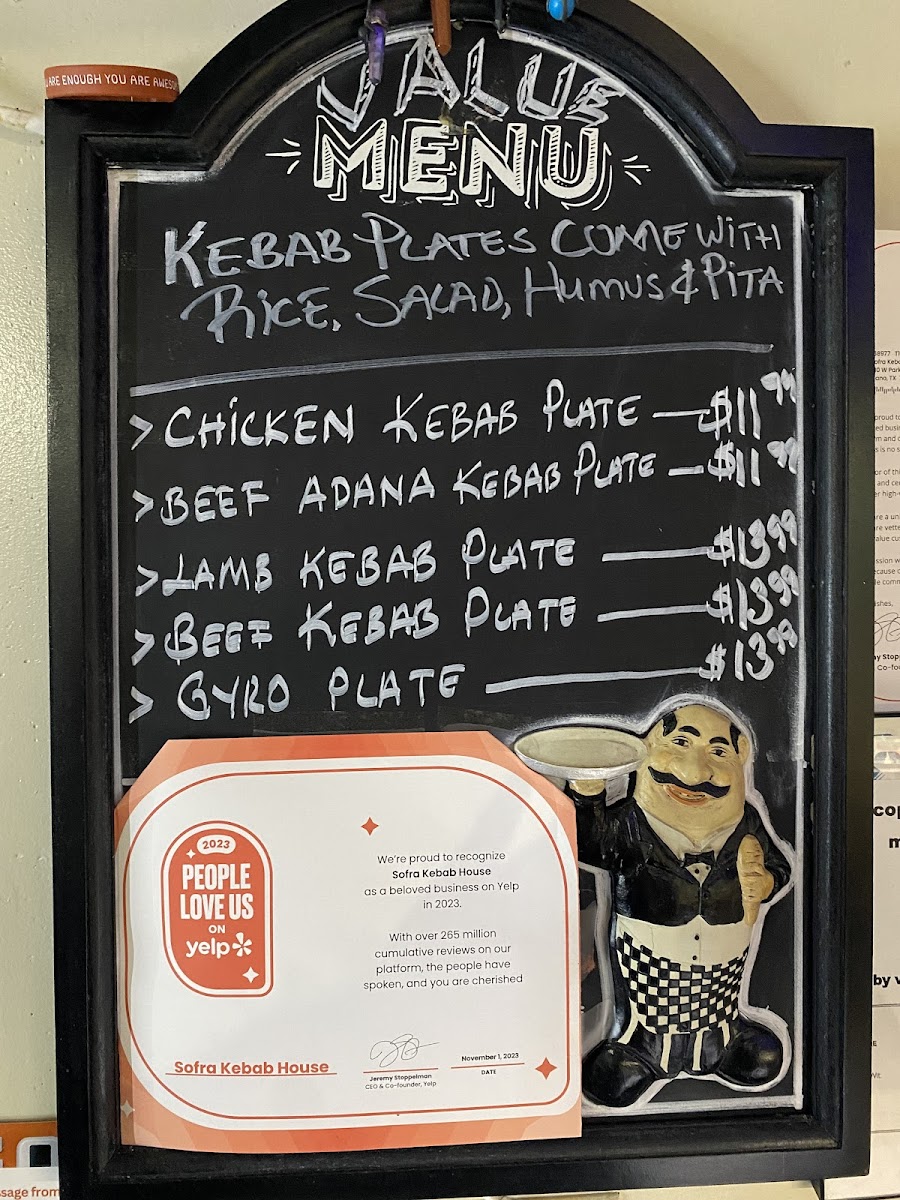 ARE ENOUGH YOU ARE AWESO
VALUE
MENU
KEBAB PLATES COME WITH
RICE, SALAD, HUMUS & PITA
> CHICKEN KEBAB PLATE — $11 99
> BEEF ADANA KEBAB PLATE — $11 99
> LAMB KEBAB PLATE — $13 99
> BEEF KEBAB PLATE — $13 99
> GYRO PLATE — $13 99
2023
PEOPLE
LOVE US
ON
yelp
We're proud to recognize
Sofra Kebab House
as a beloved business on Yelp
in 2023.
With over 265 million
cumulative reviews on our
platform, the people have
spoken, and you are cherished
Sofra Kebab House
Jeremy Stoppelman
CEO & Co-founder, Yelp
November 1, 2023
DATE
ssage from